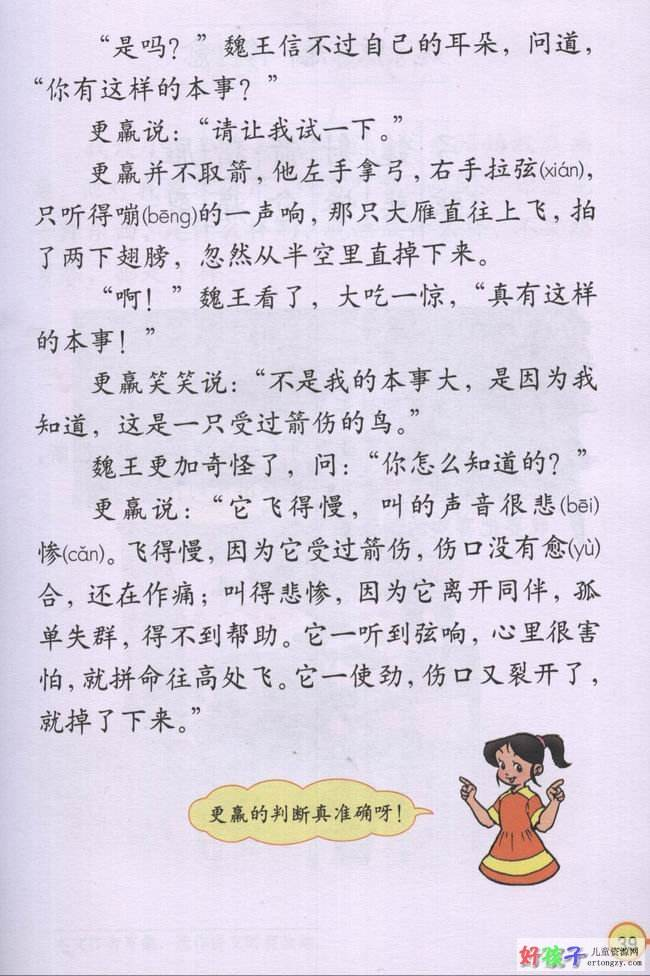 “是吗？”魏王信不过自己的耳朵，问道，
“你有这样的本事？”
更羸说：“请让我试一下。”
更羸并不取箭，他左手拿弓，右手拉弦(xián)，
只听得嘣(bēng)的一声响，那只大雁直往上飞，拍
了两下翅膀，忽然从半空里直掉下来。
“啊！”魏王看了，大吃一惊，“真有这样
的本事！”
更羸笑笑说：“不是我的本事大，是因为我
知道，这是一只受过箭伤的鸟。”
魏王更加奇怪了，问：“你怎么知道的？”
更羸说：“它飞得慢，叫的声音很悲(bēi)
惨(cǎn)。飞得慢，因为它受过箭伤，伤口没有愈(yù)
合，还在作痛；叫得悲惨，因为它离开同伴，孤
单失群，得不到帮助。它一听到弦响，心里很害
怕，就拼命往高处飞。它一使劲，伤口又裂开了，
就掉了下来。”
更羸的判断真准确呀！
39
好孩子 儿童资源网
ertongzy.com